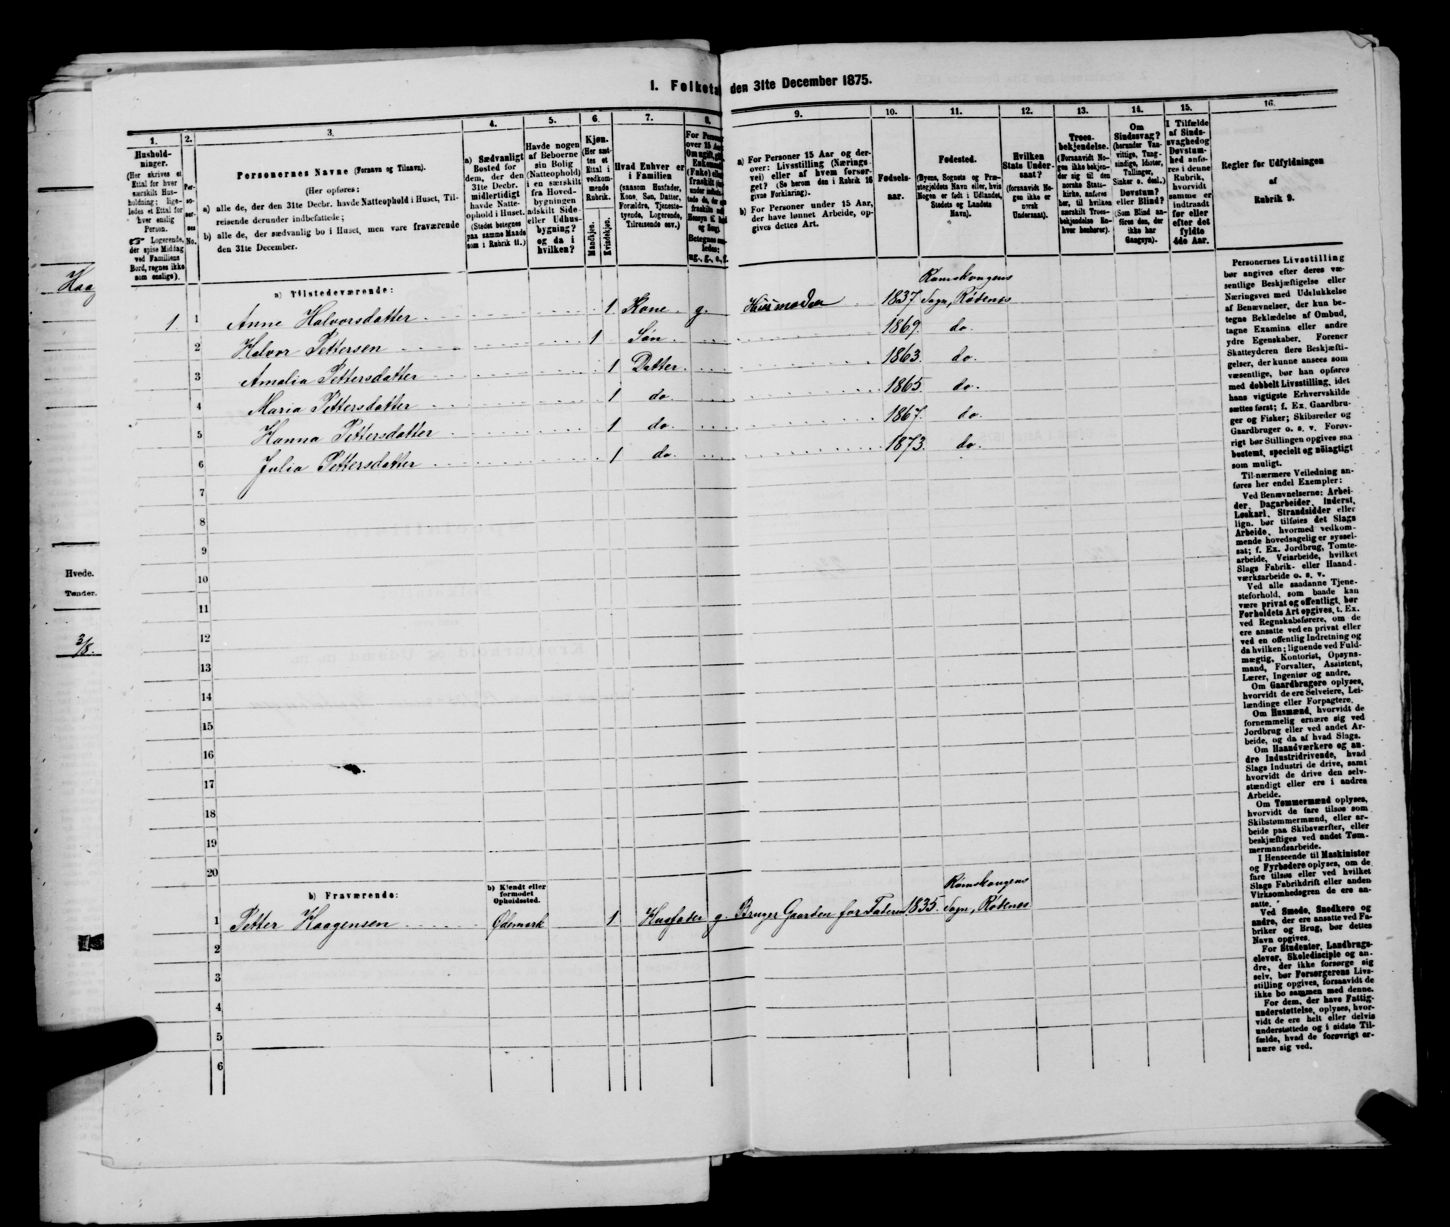 1. Folketa den 31te December 1875.
1.
Hushold-
ninger.
(Her skrives et
Ettal for hver
særskilt Hus-
holdning; lige-
ledes et Ettal for
hver enslig
Person.
Logerende,
der spise Middag
ved Familiens
Bord, regnes ikke
som enslige).
2.
Per-
so-
ner-
nes
No.
3.
Personernes Navne (Fornavn og Tilnavn).
(Her opføres:
a) alle de, der den 31te Decbr. havde Natteophold i Huset, Til-
reisende derunder indbefattede;
b) alle de, der sædvanlig bo i Huset, men vare fraværende
den 31te December.
4.
a) Sædvanligt
Bosted for
dem, der den
31te Decbr.
midlertidigt
havde Natte-
ophold i Huset.
(Stedet betegnes
paa samme Maade
som i Rubrik 11.)
5.
Havde nogen
af Beboerne
sin Bolig
(Natteophold)
i en særskilt
fra Hoved-
bygningen
adskilt Side-
eller Udhus-
bygning?
og da i
hvilken?
6.
Kjøn.
(Her sæt-
tes et
Ettal i
vedkom-
mende
Rubrik.
Mandkjøn.
Kvindekjøn.
7.
Hvad Enhver er
i Familien
(saasom Husfader,
Kone, Søn, Datter,
Forældre, Tjeneste-
tyende, Logerende,
Tilreisende osv.)
8.
For Person
over 15 Aar
Om ugift, gift,
Enkemand
(Enke) eller
fraskilt
Betegnes saa-
ledes:
ug., g., e., f.
9.
a) For Personer 15 Aar og der-
over: Livsstilling (Nærings-
vei) eller af hvem forsør-
get? (Se herom den i Rubrik 16
givne Forklaring).
b) For Personer under 15 Aar,
der have lønnet Arbeide, op-
gives dettes Art.
10.
Fødsels-
aar.
11.
Fødested.
(Byens, Sognets og Præ-
stegjeldets Navn eller, hvis
Nogen er født i Udlandet,
Stedets og Landets
Navn).
12.
Hvilken
Stats Under-
saat?
(forsaavidt No-
gen ikke er
norsk
Undersaat).
13.
Troes-
bekjendelse.
(Forsaavidt No-
gen ikke bekjen-
der sig til den
norske Stats-
kirke, anføres
her, til hvilken
særskilt Troes-
bekjendelse En-
hver henhører).
14.
Om
Sindssvag?
(herunder Van-
vittige, Tung-
sindige, Idioter,
Tullinger,
Sinker o. desl.)
Døvstum?
eller Blind?
(Som Blind an-
føres den, der
ikke har
Gangsyn).
15.
I Tilfælde
af Sinds-
svaghed og
Døvstum-
hed anfø-
res i denne
Rubrik,
hvorvidt
samme er
indtraadt
før eller
efter det
fyldte
4de Aar.
16.
Regler for Udfyldningen
af
Rubrik 9.
a) Tilstedeværende:
1 1 Anne Halvorsdatter 1 Kone g. Husmoder 1837 Rømskougens Sogn, Rødenes
2 Halvor Pettersen 1 Søn 1869. do.
3 Amalia Pettersdatter 1 Datter. 1863. do.
4 Maria Pettersdatter 1 do. 1865. do.
5 Hanna Pettersdatter 1 do. 1867. do.
6 Julia Pettersdatter 1 do. 1873. do.
7
8
9
10
11
12
13
14
15
16
17
18
19
20
b) Fraværende:
b) Kjendt eller
formodet
Opholdssted.
1 Petter Haagensen Ødemark 1 Husfader g. Bruger Gaarden for Faderen 1835. Rømskougens Sogn, Rødenes
2
3
4
5
6
Haag
Hvede.
Tønder.
3/8.
Personernes Livsstilling
bør angives efter deres væ-
sentlige Beskjæftigelse eller
Næringsvei med Udelukkelse
af Benævnelser, der kun be-
tegne Beklædelse af Ombud,
tagne Examina eller andre
ydre Egenskaber. Forener
Skatteyderen flere Beskjæfti-
gelser, der kunne ansees som
væsentlige, bør han opføres
med dobbelt Livsstilling, idet
hans vigtigste Erhvervskilde
sættes først; f. Ex. Gaardbru-
ger og Fisker; Skibsreder og
Gaardbruger o. s. v. Forøv-
rigt bør Stillingen opgives saa
bestemt, specielt og nøiagtigt
som muligt.
Til nærmere Veiledning an-
føres her endel Exempler:
Ved Benævnelserne: Arbei-
der, Dagarbeider, Inderst,
Løskarl, Strandsidder eller
lign. bør tilføies det Slags
Arbeide, hvormed vedkom-
mende hovedsagelig er syssel-
sat; f. Ex. Jordbrug, Tomte-
arbeide, Veiarbeide, hvilket
Slags Fabrik- eller Haand-
værksarbeide o. s. v.
Ved alle saadanne Tjene-
steforhold, som baade kan
være privat og offentligt, bør
Forholdets Art opgives, t. Ex.
ved Regnskabsførere, om de
ere ansatte ved en privat eller
ved en offentlig Indretning og
da hvilken; lignende ved Fuld-
mægtig, Kontorist, Opsyns-
mand, Forvalter, Assistent,
Lærer, Ingeniør og andre.
Om Gaardbrugere oplyses,
hvorvidt de ere Selveiere, Lei-
lændinge eller Forpagtere.
Om Husmænd, hvorvidt de
fornemmelig ernære sig ved
Jordbrug eller ved andet Ar-
beide, og da af hvad Slags.
Om Haandværkere og an-
dre Industridrivende, hvad
Slags Industri de drive, samt
hvorvidt de drive den selv-
stændigt eller ere i andres
Arbeide.
Om Tømmermænd oplyses,
hvorvidt de fare tilsøs som
Skibstømmermænd, eller ar-
beide paa Skibsværfter, eller
beskjæftiges ved andet Tøm-
mermandsarbeide.
I Henseende til Maskinister
og Fyrbødere oplyses, om de
fare tilsøs eller ved hvilket
Slags Fabrikdrift eller anden
Virksomhedsgren de ere an-
satte.
Ved Smede, Snedkere og
andre, der ere ansatte ved Fa-
briker og Brug, bør dettes
Navn opgives.
For Studenter, Landbrugs-
elever, Skoledisciple og an-
dre, der ikke forsørge sig
selv, bør Forsørgerens Livs-
stilling opgives, forsaavidt de
ikke bo sammen med denne.
For dem, der have Fattig-
understøttelse, oplyses, hvor-
vidt de ere helt eller delvis
understøttede og i sidste Til-
fælde, hvad de forøvrigt er-
nære sig ved.